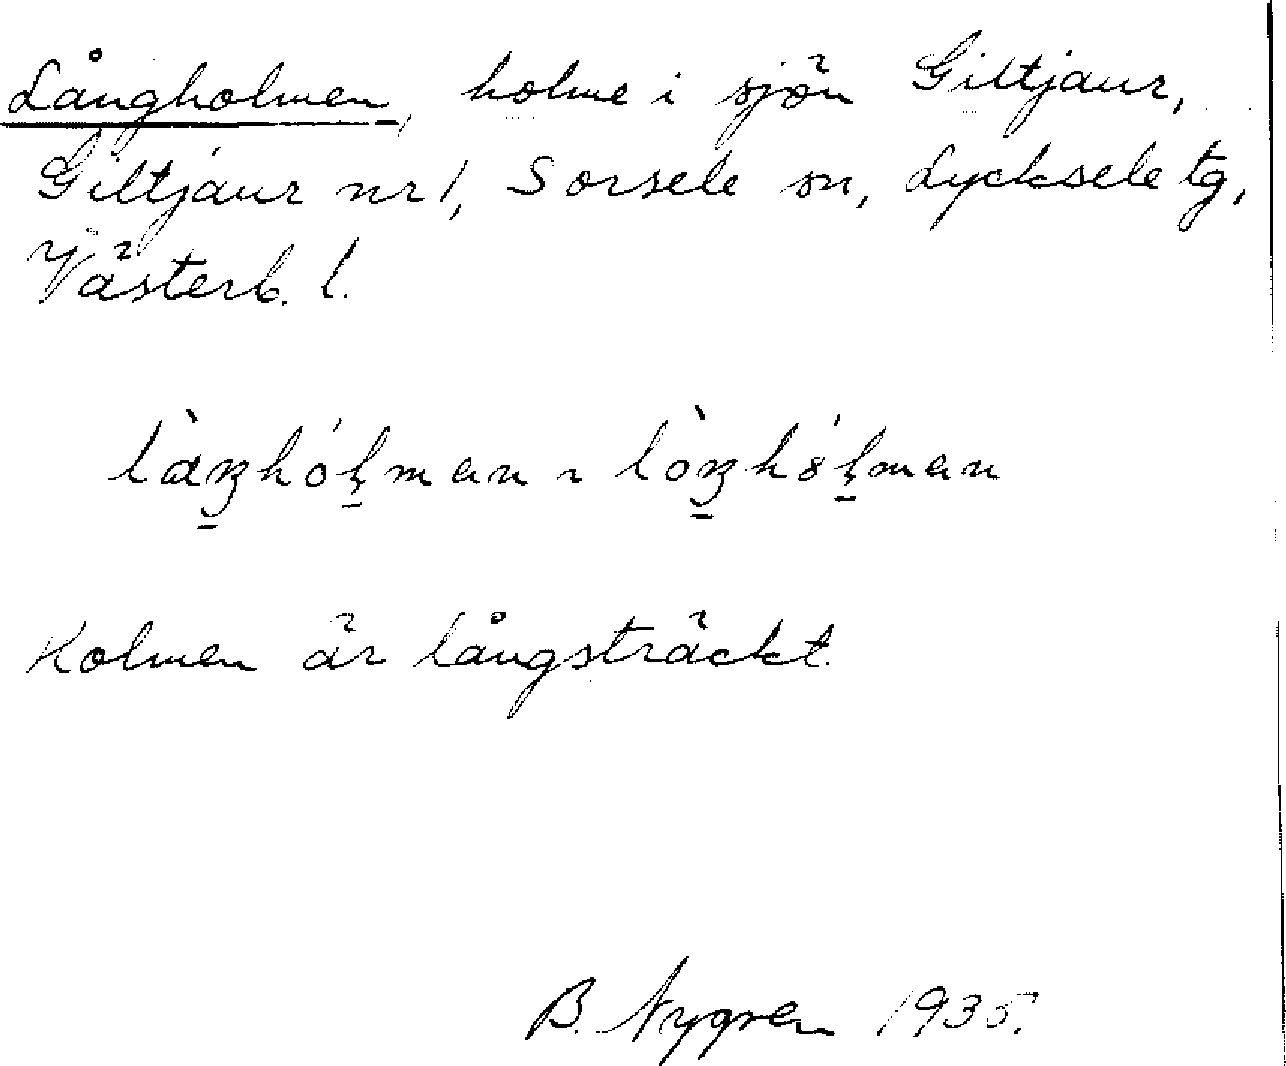 Långholmen, holme i sjön Giltjaur,
Giltjaur nr 1, Sorsele sn, Lycksele tg,
Västerb. l.
Holmen är långsträckt.
B. Nygren 1935.